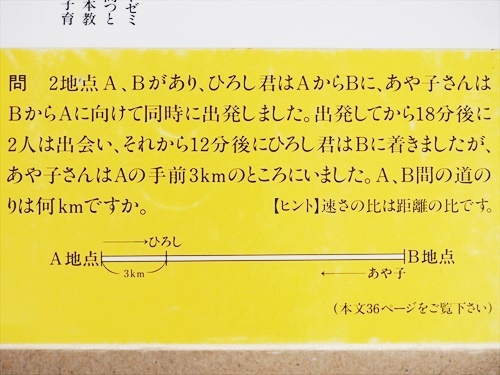 ゼミ
つと
本教
子育
問 2地点A、Bがあり、ひろし君はAからBに、あや子さんは
BからAに向けて同時に出発しました。出発してから18分後に
2人は出会い、それから12分後にひろし君はBに着きましたが、
あや子さんはAの手前3kmのところにいました。A、B間の道の
りは何kmですか。 【ヒント】速さの比は距離の比です。
ひろし
A地点 B地点
3km あや子
(本文36ページをご覧下さい)